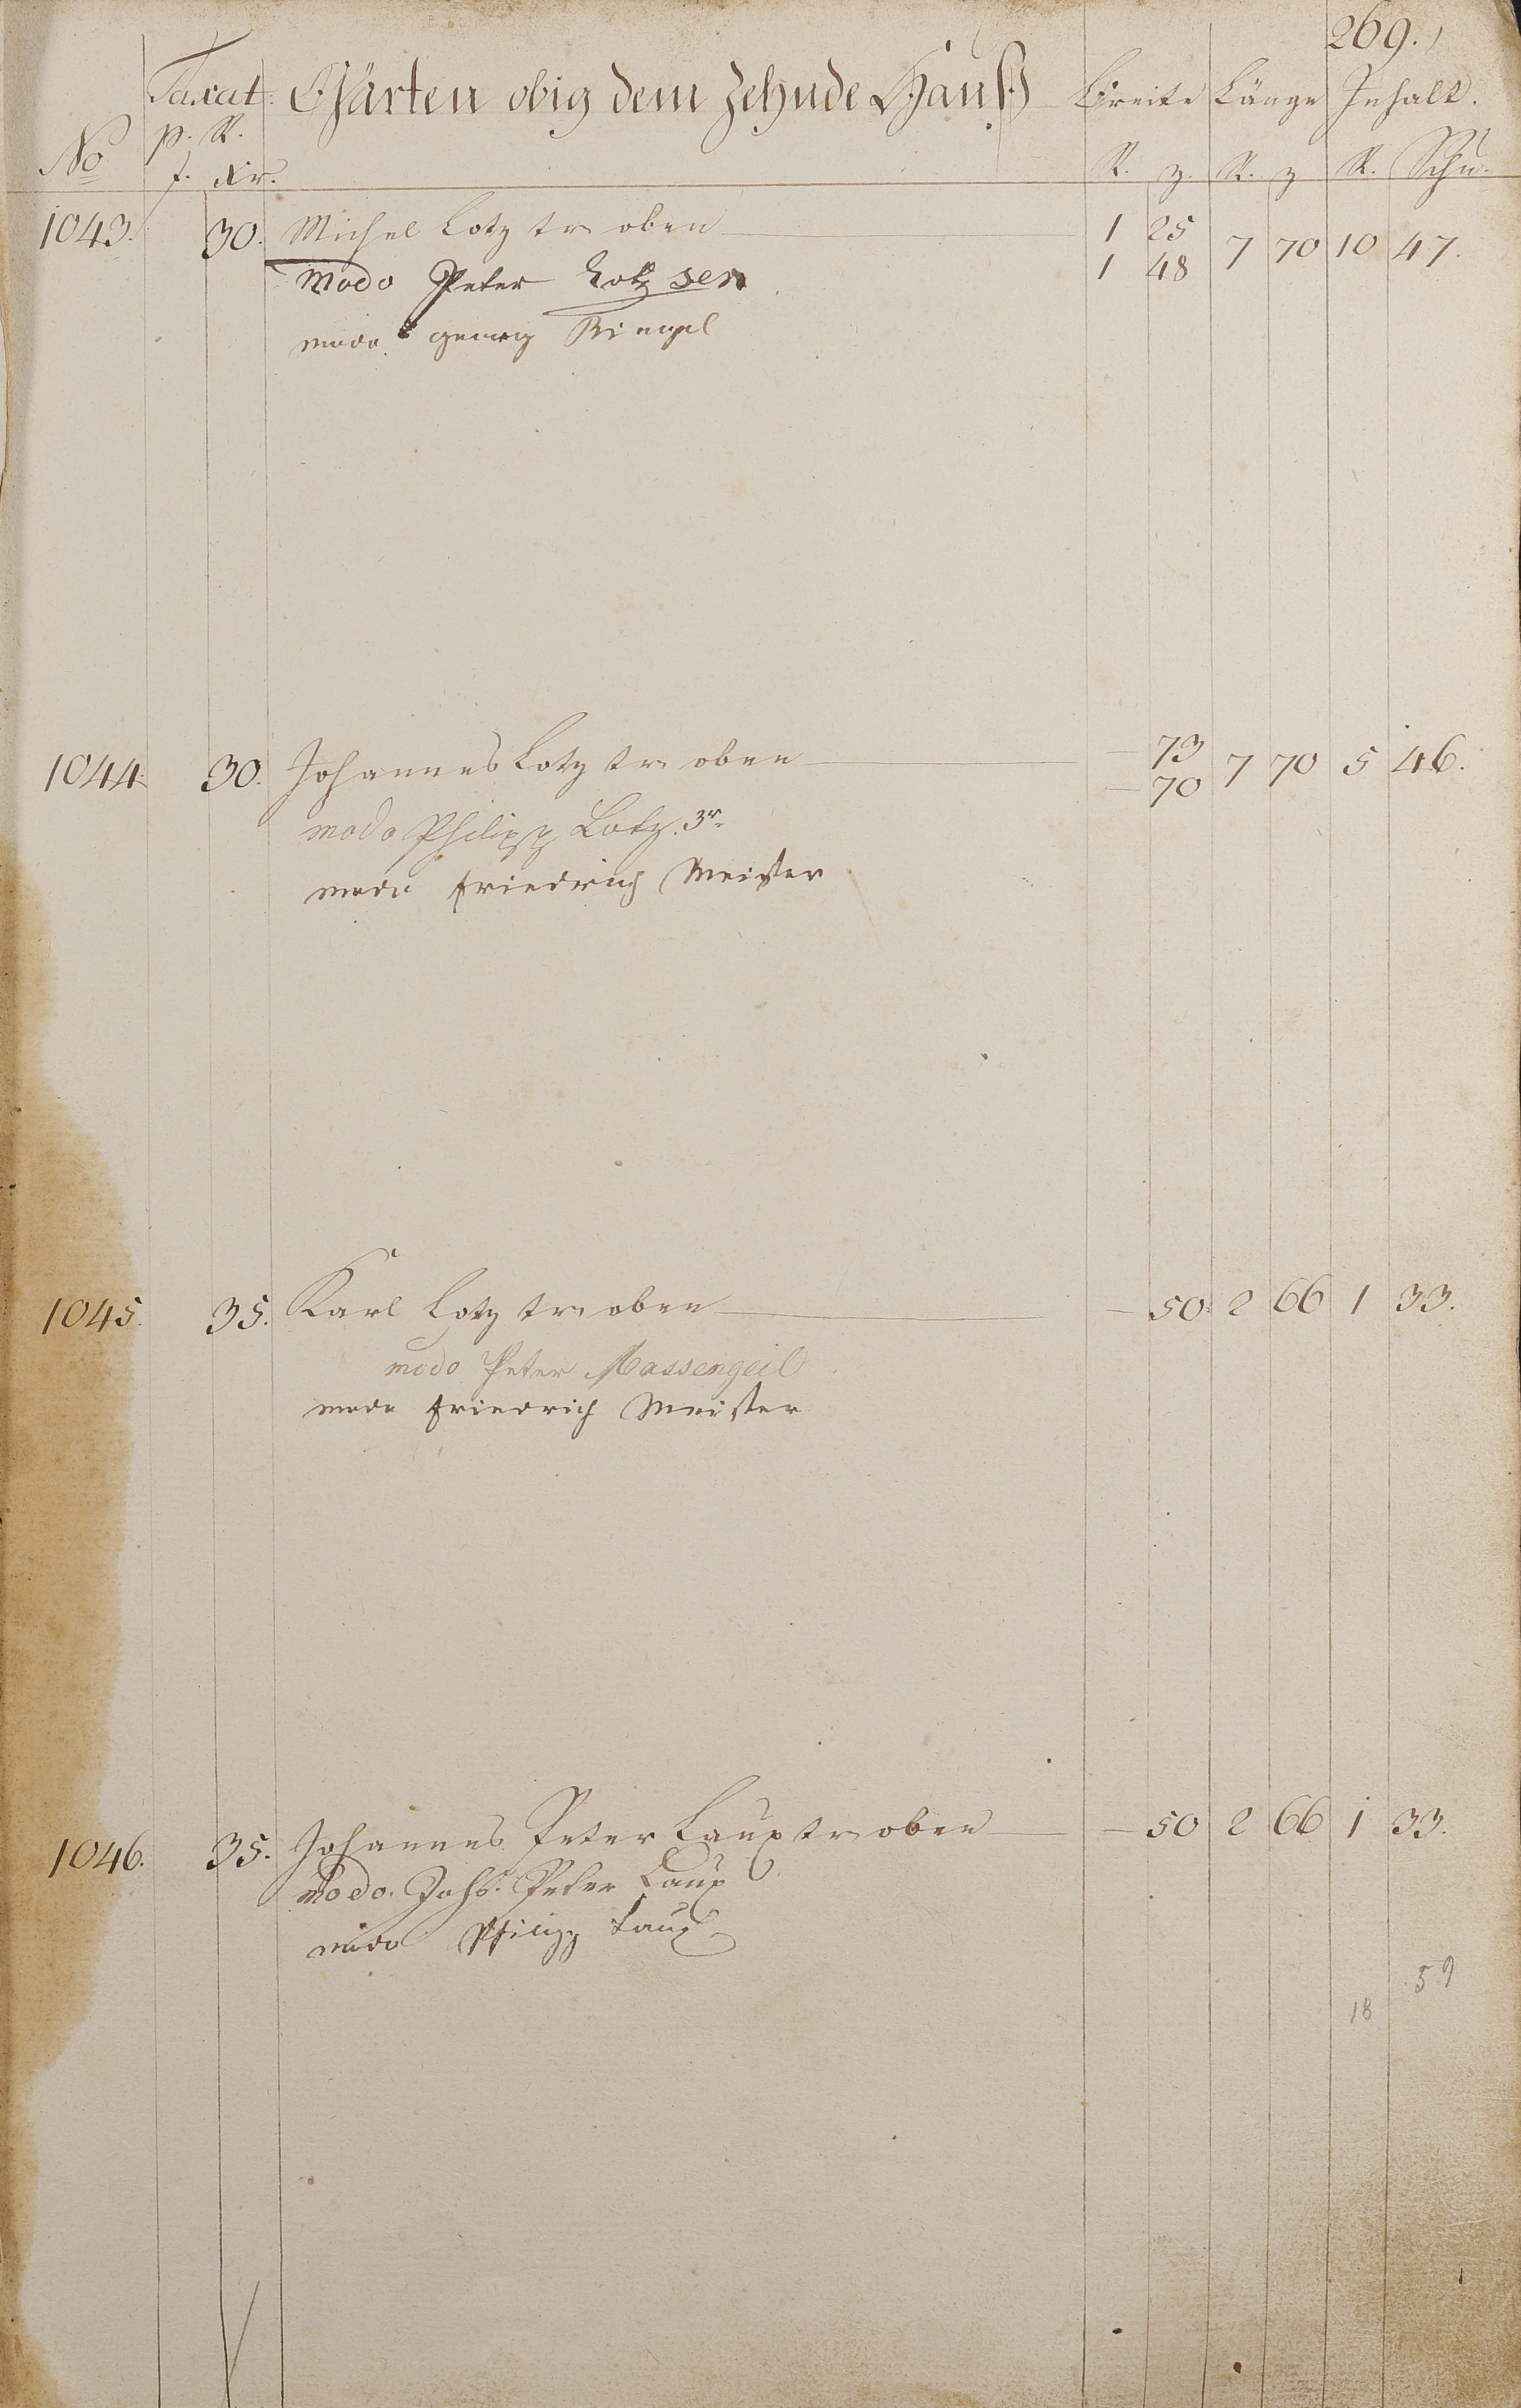 269.
Taxat: Gärten obig dem Zehnde Hauß Breite Länge Inhalt.
p. R.
No f. Xr. R. z. R. z R. Schu.
1043. 30. Michel Lotz tr oben 1 25 7 70 10 47.
1 48
Modo Peter Lotz sen
modo georg
1044. 30. Johannes Lotz tr oben — 73 7 70 5 46.
— 70
modo Philipp Lotz. 3r.
modo Friedrich Meister
1045. 35. Karl Lotz tr oben — 50. 2 66 1 33.
modo Peter Massengeil
modo Friedrich Meister
1046. 35. Johannes Peter Laux tr oben — 50 2 66 1 33.
modo. Johs. Peter Laux
modo Philipp Laux
59
18